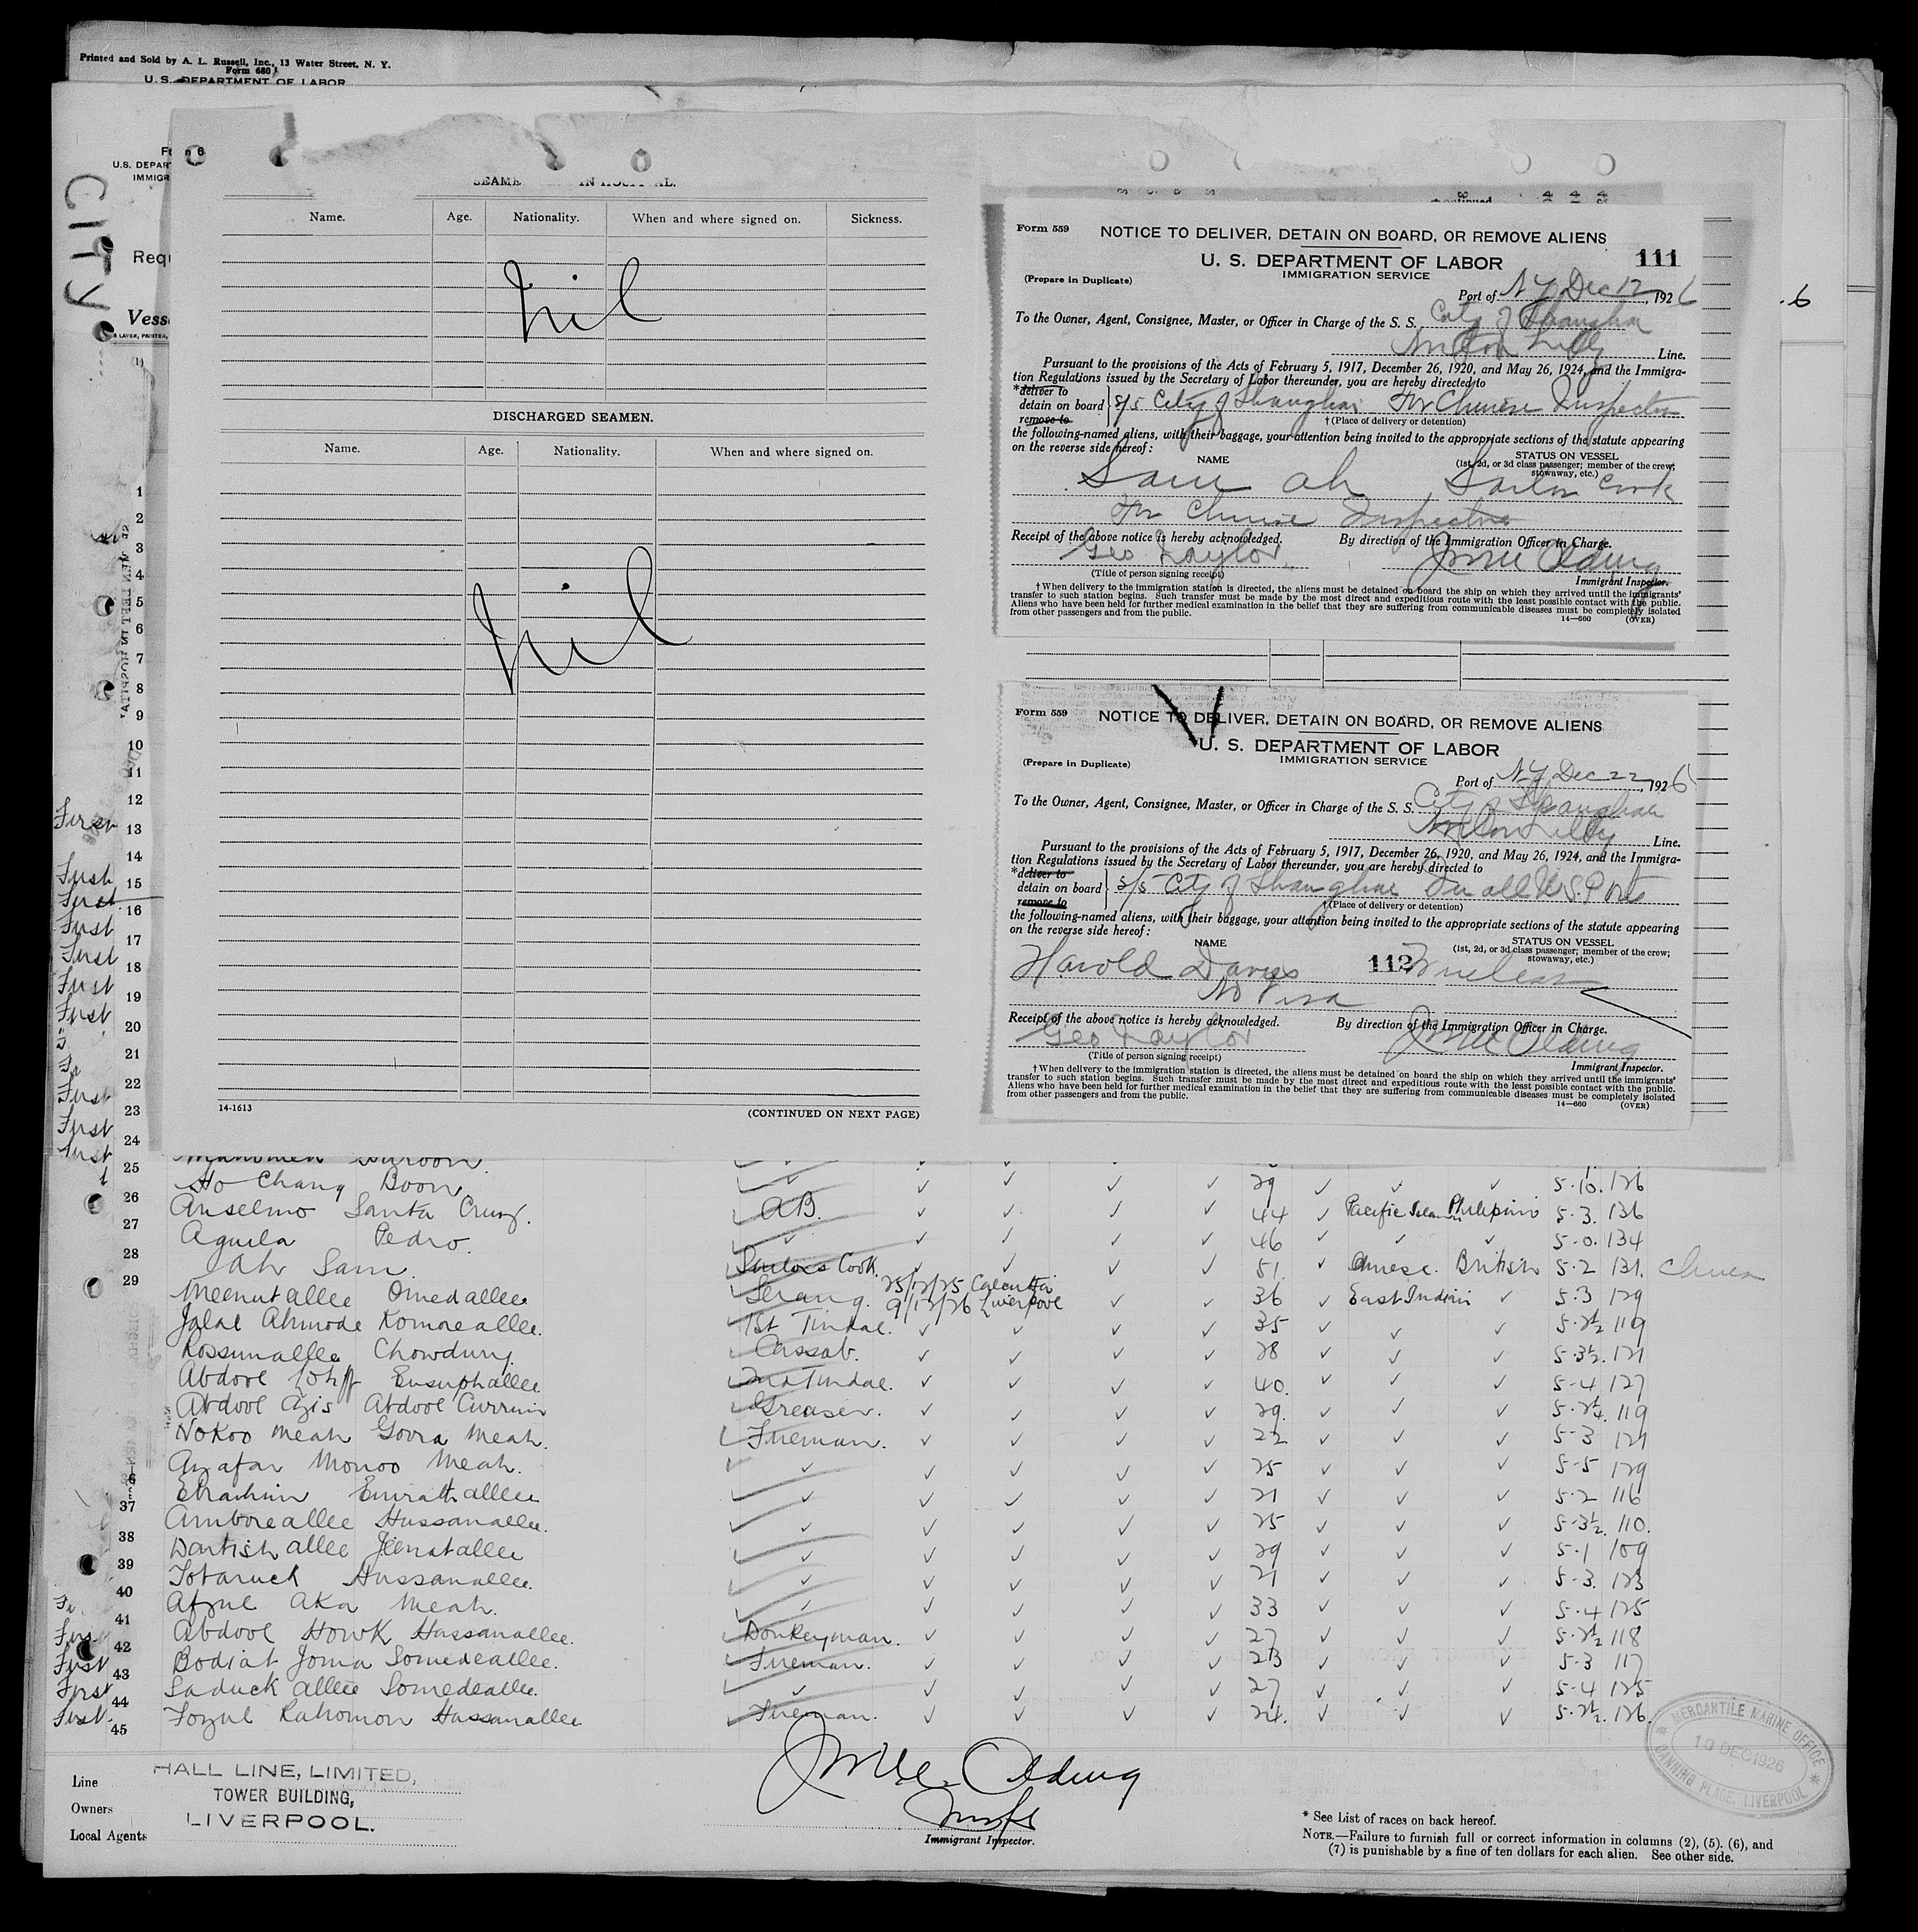 Printed and Sold by A. L. Russell, Inc., 13 Water Street, N. Y.
Form 680
U. S. DEPARTMENT OF LABOR
U.S. DEPAR
IMMIGR
CITY
Requ
Vess
Name. Age. Nationality. When and where signed on. Sickness.
Nil
DISCHARGED SEAMEN.
Name. Age. Nationality. When and where signed on.
Nil
14-1613
(CONTINUED ON NEXT PAGE)
Form 559
NOTICE TO DELIVER, DETAIN ON BOARD, OR REMOVE ALIENS
111
U. S. DEPARTMENT OF LABOR
IMMIGRATION SERVICE
(Prepare in Duplicate)
Port of N Y Dec 12, 1926
To the Owner, Agent, Consignee, Master, or Officer in Charge of the S. S. City of Shanghai
Norton Lilly Line.
Pursuant to the provisions of the Acts of February 5, 1917, December 26, 1920, and May 26, 1924, and the Immigra-
tion Regulations issued by the Secretary of Labor thereunder, you are hereby directed to
*deliver to
detain on board } S/S City of Shanghai For Chinese Inspector
remove to
†(Place of delivery or detention)
the following-named aliens, with their baggage, your attention being invited to the appropriate sections of the statute appearing
on the reverse side hereof:
NAME
STATUS ON VESSEL
(1st, 2d, or 3d class passenger; member of the crew;
stowaway, etc.)
Sam Ah Sailor Cook
For Chinese Inspector
Receipt of the above notice is hereby acknowledged. By direction of the Immigration Officer in Charge.
Geo Taylor
(Title of person signing receipt)
Immigrant Inspector.
†When delivery to the immigration station is directed, the aliens must be detained on board the ship on which they arrived until the immigrants'
transfer to such station begins. Such transfer must be made by the most direct and expeditious route with the least possible contact with the public.
Aliens who have been held for further medical examination in the belief that they are suffering from communicable diseases must be completely isolated
from other passengers and from the public.
14—660 (OVER)
Form 559
NOTICE TO DELIVER, DETAIN ON BOARD, OR REMOVE ALIENS
U. S. DEPARTMENT OF LABOR
IMMIGRATION SERVICE
(Prepare in Duplicate)
Port of N Y Dec 22, 1926
To the Owner, Agent, Consignee, Master, or Officer in Charge of the S. S. City of Shanghai
Norton Lilly Line.
Pursuant to the provisions of the Acts of February 5, 1917, December 26, 1920, and May 26, 1924, and the Immigra-
tion Regulations issued by the Secretary of Labor thereunder, you are hereby directed to
*deliver to
detain on board } S/S City of Shanghai In all U.S. Ports
remove to
†(Place of delivery or detention)
the following-named aliens, with their baggage, your attention being invited to the appropriate sections of the statute appearing
on the reverse side hereof:
NAME
STATUS ON VESSEL
(1st, 2d, or 3d class passenger; member of the crew;
stowaway, etc.)
Harold Davies 112 Wireless
No Visa
Receipt of the above notice is hereby acknowledged. By direction of the Immigration Officer in Charge.
Geo Taylor
(Title of person signing receipt)
Immigrant Inspector.
†When delivery to the immigration station is directed, the aliens must be detained on board the ship on which they arrived until the immigrants'
transfer to such station begins. Such transfer must be made by the most direct and expeditious route with the least possible contact with the public.
Aliens who have been held for further medical examination in the belief that they are suffering from communicable diseases must be completely isolated
from other passengers and from the public.
14—660 (OVER)
Ho Chang Boon 29 5.10. 126
Anselmo Santa Cruz. A.B. 44 Pacific Philipino 5.3. 136
Aguila Pedro. 46 5.0. 134
Ah Sam Sailors Cook. 51. Chinese. British 5.2 131.
Meenutallee Omedallee. Serang. 25/12/25 Calcutta 9/12/26 Liverpool 36 East Indian 5.3 129
Jalal Ahmode Komoreallee. 1st Tindal. 35 5.2½ 119
Rossumallee Chowdury. Cassab. 28 5.3½. 121
Abdool Eusuphallee. 2nd Tindal. 40. 5-4 127
Abdool Azis Abdool Currim Greaser. 29. 119
Nokoo Meah Goira Meah. Fireman. 22 5-3 121
Azafar Monoo Meah. 25 5-5 129
Ebrahim Emratthallee 21 5.2 116
Amboreallee Hussanallee. 25 5.3½. 110.
Dantish allee Jeenatallee 29 5.1 109
Totaruck Hussanallee. 21 5.3. 123
Afzul Aka Meah. 33 5.4 125
Abdool Howk Hassanallee. Donkeyman. 27 5.2½ 118
Bodiat Joma Somedeallee. Fireman. 23 5.3 117
Saduck allee Somedeallee. 27 5.4 125
Fozul Rahomon Hassanallee Fireman. 24. 5.2½. 126.
Line HALL LINE, LIMITED,
Owners TOWER BUILDING,
Local Agents LIVERPOOL.
Immigrant Inspector.
* See List of races on back hereof.
NOTE.—Failure to furnish full or correct information in columns (2), (5), (6), and
(7) is punishable by a fine of ten dollars for each alien. See other side.
MERCANTILE MARINE OFFICE
10 DEC 1926
CANNING PLACE, LIVERPOOL